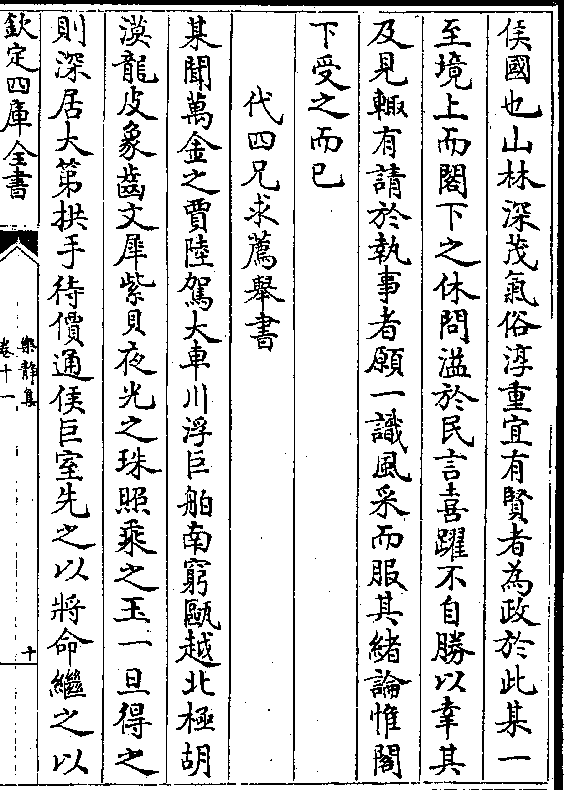 侯國也山林深茂氣俗淳重宜有賢者為政於此某一
至境上而閤下之休問溢於民言喜躍不自勝以幸其
及見輙有請於執事者願一識風采而服其緒論惟閤
下受之而已
代四兄求薦舉書
某聞萬金之賈陸駕大車川浮巨舶南窮甌越北極胡
漠龍皮象齒文犀紫貝夜光之珠照乘之玉一旦得之
則深居大第拱手待價通侯巨室先之以將命繼之以
欽定四庫全書
樂静集
卷十一
十